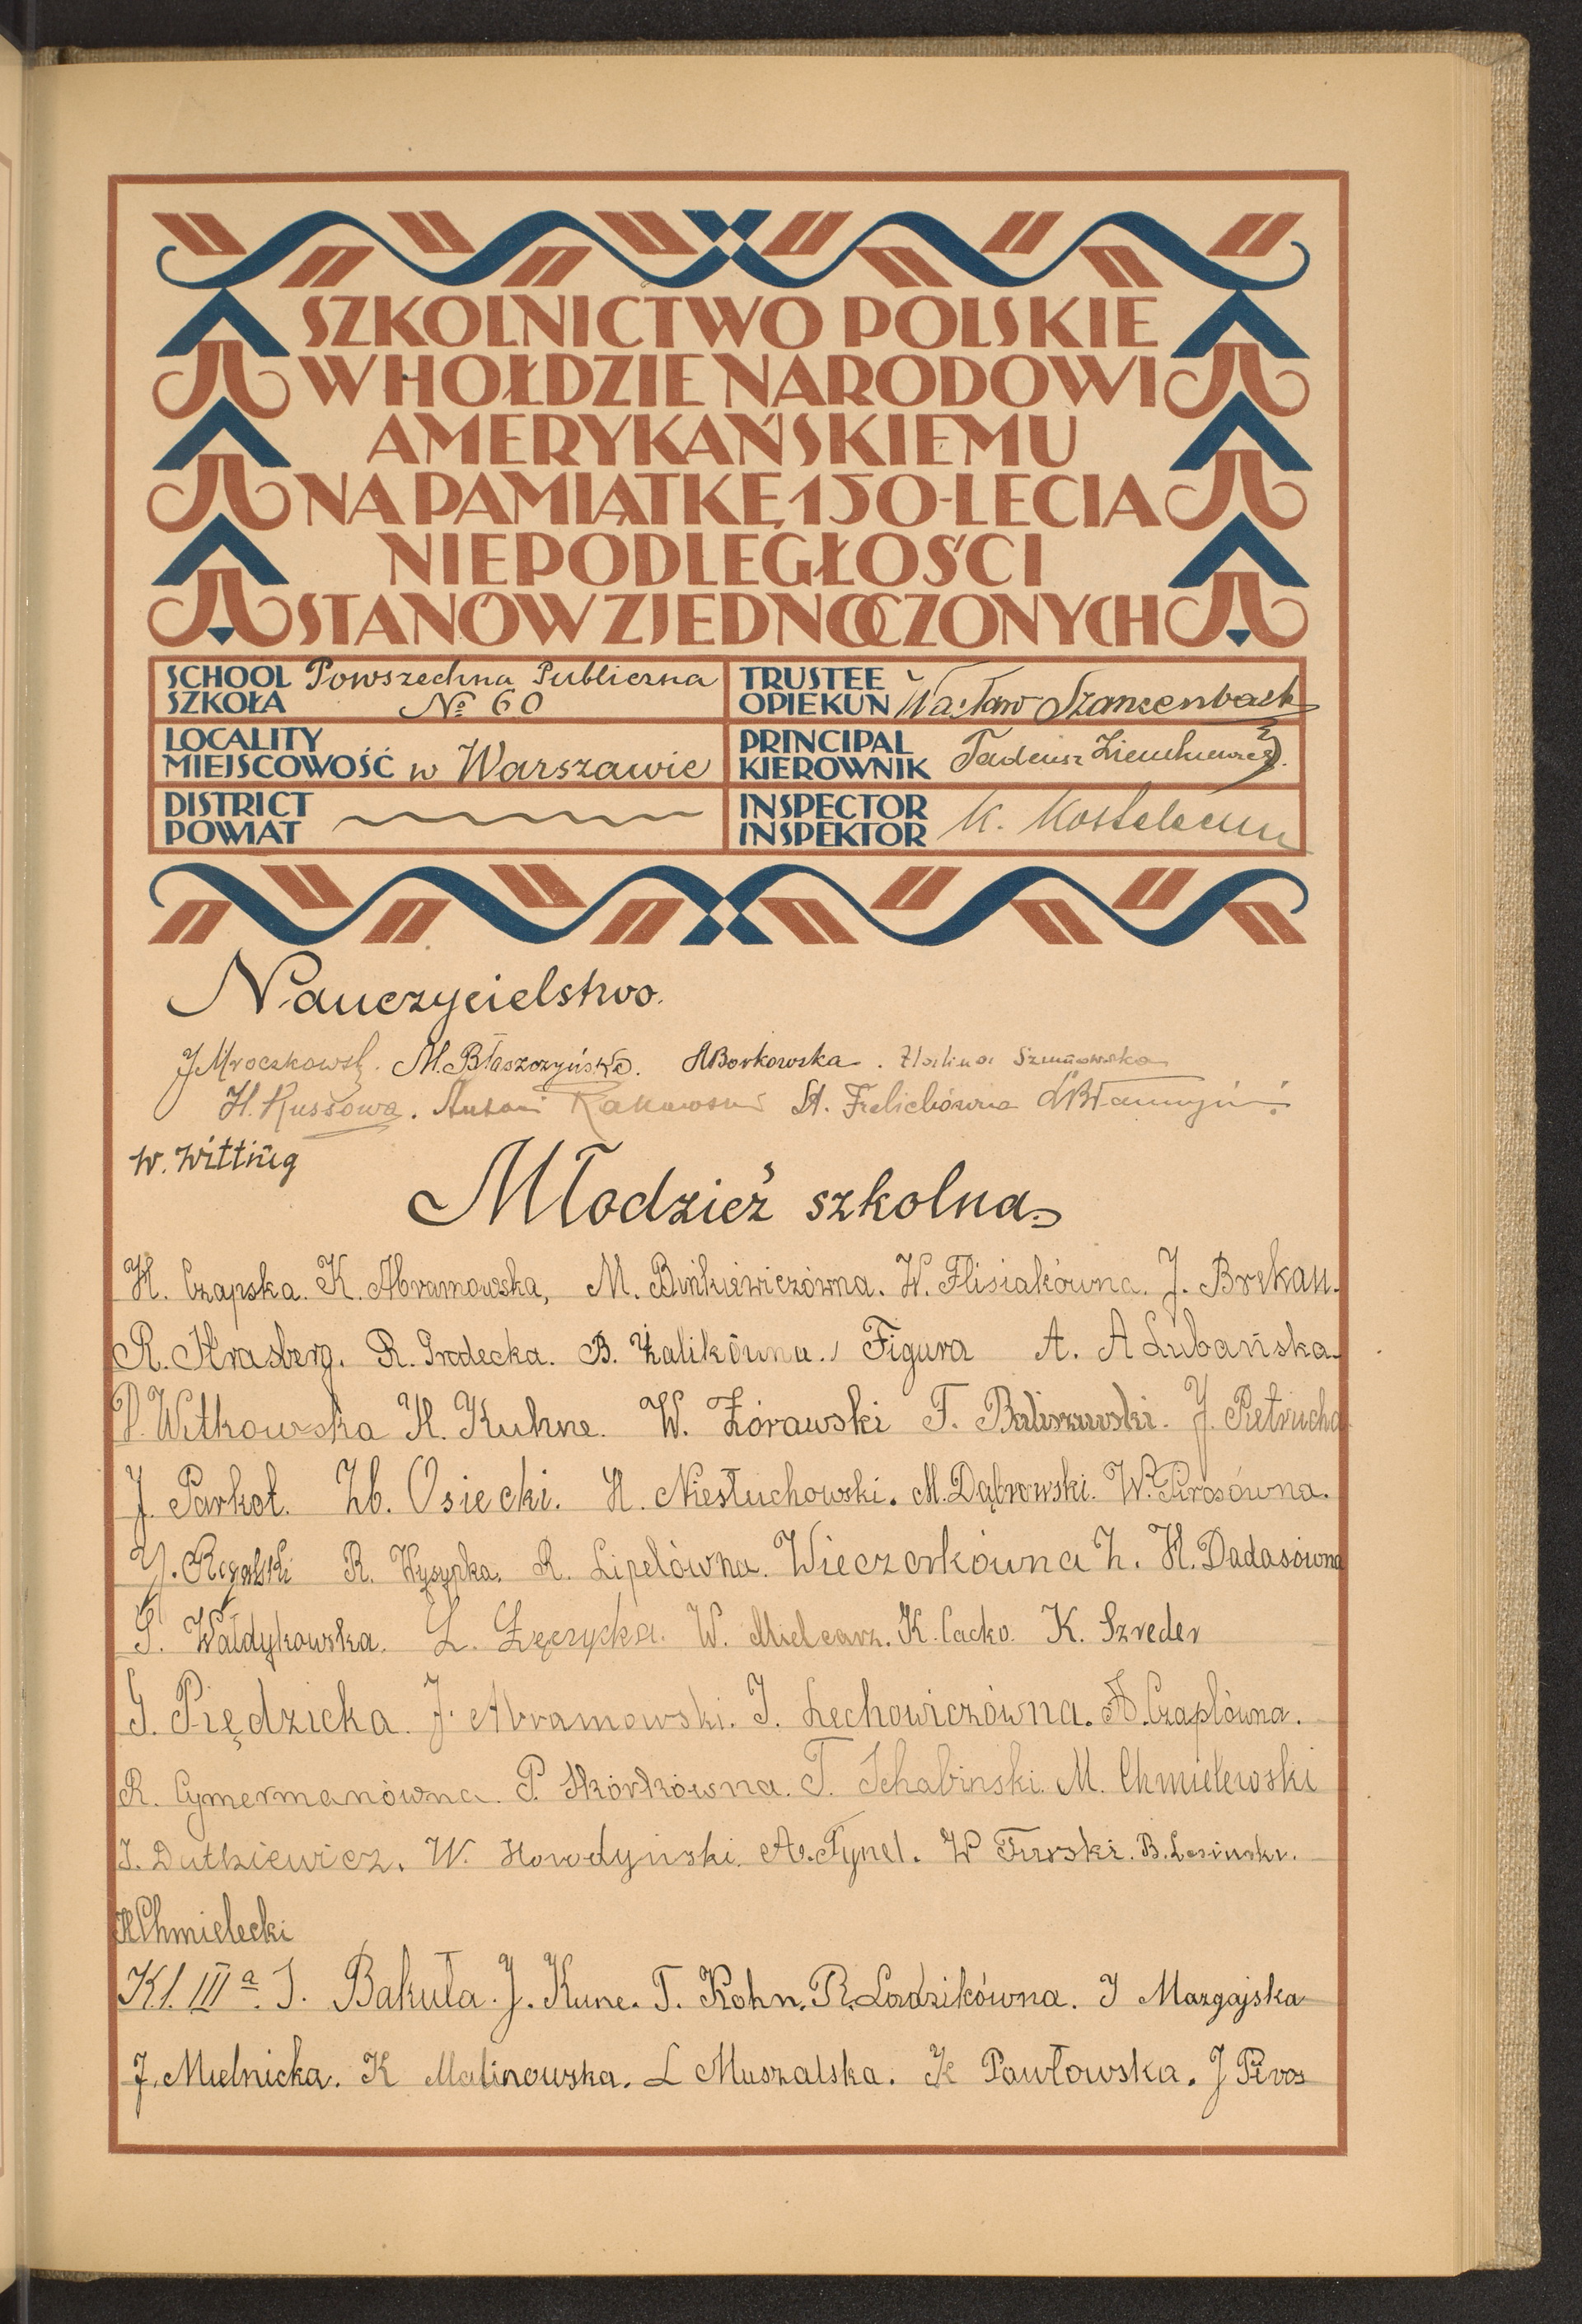 SZKOLNICTWO POLSKIE
W HOŁDZIE NARODOWI
AMERYKAŃSKIEMU
NA PAMIĄTKĘ 150-LECIA
NIEPODLEGŁOŚCI
STANÓW ZJEDNOCZONYCH
SCHOOL SZKOŁA Powszechna Publiczna № 60
TRUSTEE OPIEKUN Wacław Szancenbach
LOCALITY MIEJSCOWOŚĆ w Warszawie
PRINCIPAL KIEROWNIK Tadeusz Ziemkiewicz
DISTRICT POWIAT
INSPECTOR INSPEKTOR K.
Nauczycielstwo.
J Mroczkowski. M. Błaszczyńska. A Borkowska. Halina Szumowska
H. Russowa. Antoni Rakowski St. Frelichówna
W. Wittig
Młodzież szkolna
H. Czapska. K. Abramowska, M. Bińkiewiczówna. W. Flisiakówna. J. Brekau.
R. Strasberg. R. Grodecka. B. Żalikówna. Figura A. A Lubańska.
P. Witkowska H. Kuhne. W. Żórawski F. Baliszewski. J. Pietrucha
J. Parkot. Zb. Osiecki. H. Niesłuchowski. M. Dąbrowski. W. Pirosówna.
J. Rogalski R. Wysypka. R. Lipelówna. Wieczorkówna Z. H. Dadasówna
S. Wałdykowska. L. Łęczycka. W. Mielcarz. K. Cacko. K. Szreder
G. Piędzicka. J. Abramowski. J. Lechowiczówna. A. Czaplówna.
R. Cymermanówna. P. Skórkówna. T. Schabinski. M. Chmielewski
J. Dutkiewicz. W. Horodyński. A. Tynel. W Turski. B. Losinski.
H Chmielecki
Kl. III a. J. Bakuła. J. Kune. T. Kohn. R. Lordzikówna. J Mazgajska
J. Mielnicka. K Malinowska. L Muszalska. K Pawłowska. J Piros